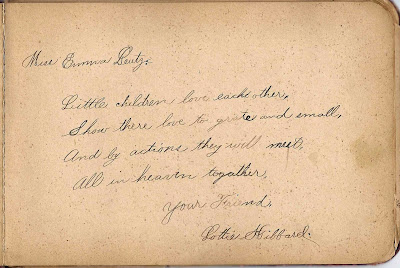 Miss Emma Lentz.
Little children love each other,
Show there love to grate and small,
And by actions they will meet.
All in heaven together,
Your Friend,
Lottie Hibbard.